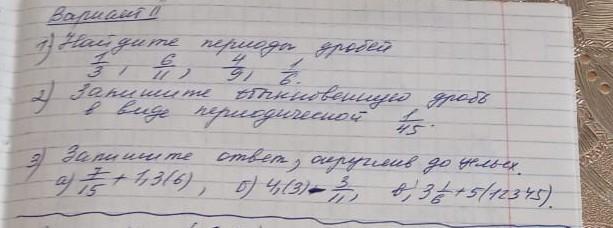 Вариант II
1) Найдите периоды дробей
1/3, 6/11, 4/9, 1/6.
2) Запишите обыкновенную дробь
в виде периодической 1/45.
3) Запишите ответ, округлив до целых.
а) 7/15 + 1,3(6), б) 4,(3) - 3/11, в) 3 1/6 + 5(12345).